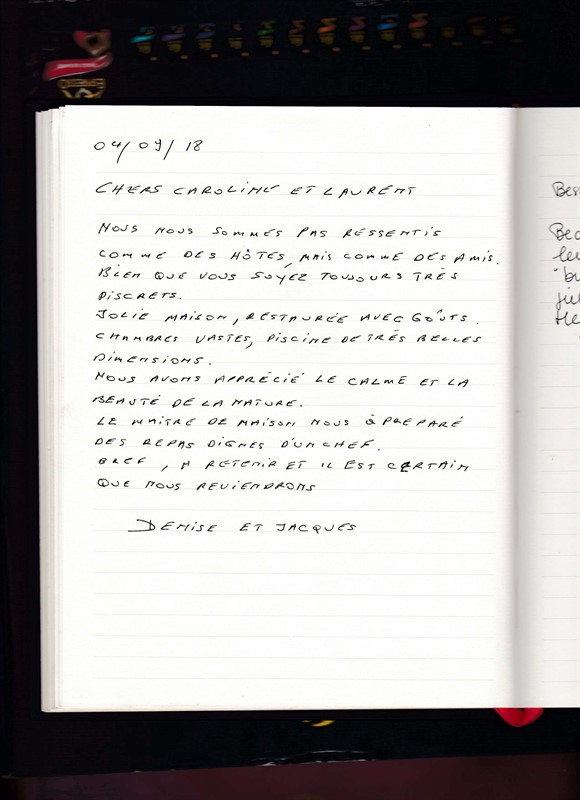 04/09/18
CHERS CAROLINE ET LAURENT
NOUS NOUS SOMMES PAS RESSENTIS
COMME DES HÔTES, MAIS COMME DES AMIS.
BIEN QUE VOUS SOYEZ TOUJOURS TRÈS
DISCRETS.
JOLIE MAISON, RESTAURÉE AVEC GOÛTS.
CHAMBRES VASTES, PISCINE DE TRÈS BELLES
DIMENSIONS.
NOUS AVONS APPRÉCIÉ LE CALME ET LA
BEAUTÉ DE LA NATURE.
LE MAITRE DE MAISON NOUS À PREPARÉ
DES REPAS DIGNES D'UN CHEF.
BREF, A RETENIR ET IL EST CERTAIN
QUE NOUS REVIENDRONS
DENISE ET JACQUES